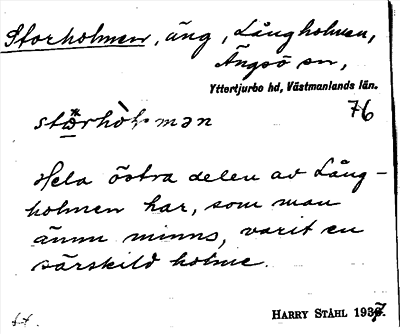 Storholmen, äng, Långholmen,
Ängsö sn,
Yttertjurbo hd, Västmanlands län.
76
Hela östra delen av Lång-
holmen har, som man
ännu minns, varit en
särskild holme.
HARRY STÅHL 1937.